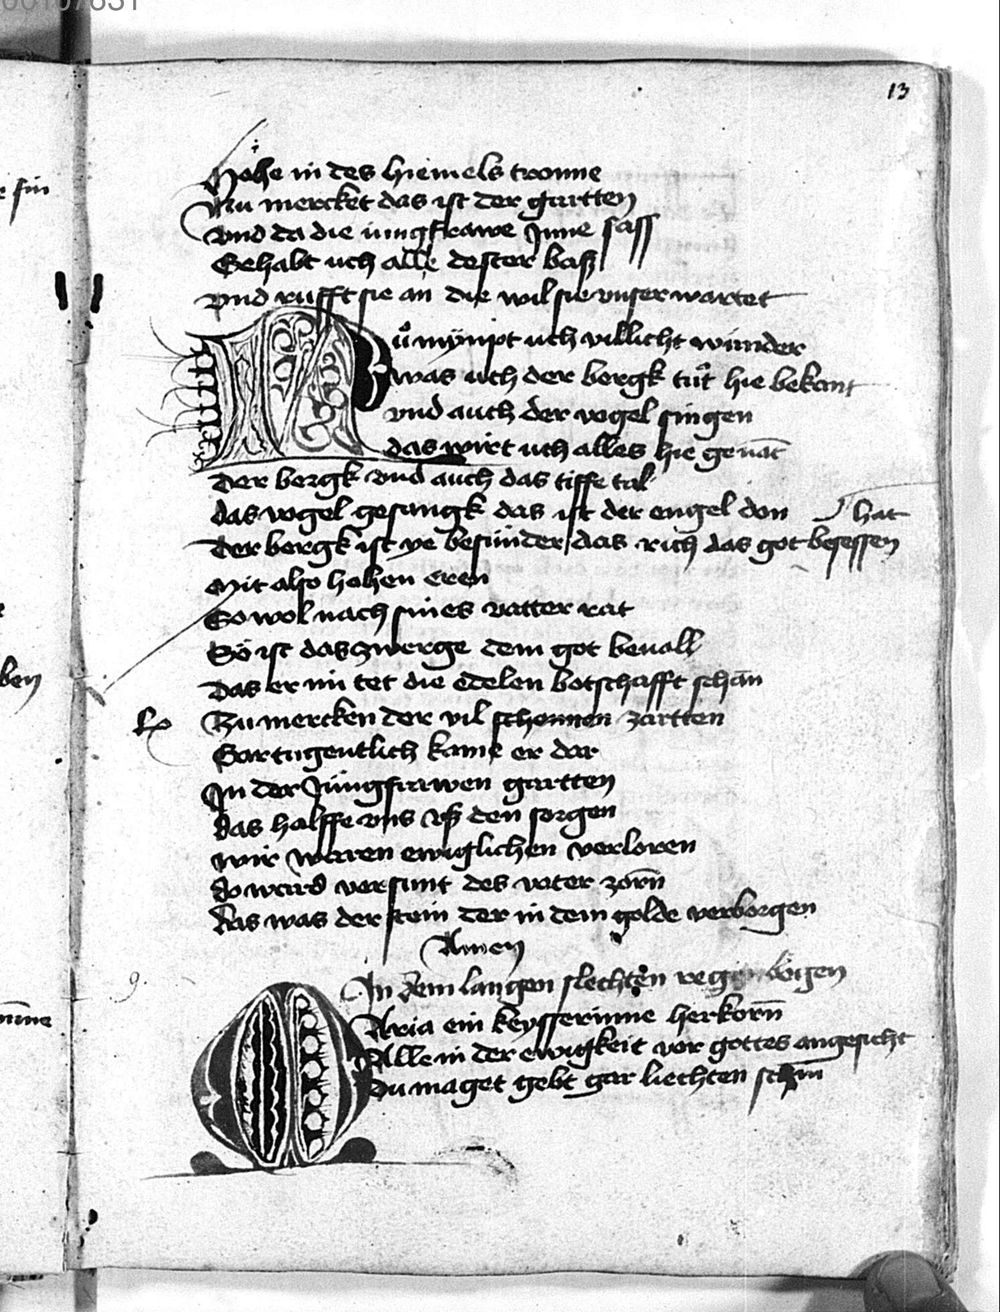 13
Hohe in des hiemels tronne
Nu mercket das ist der gartten
vnd da die iungfrawe Inne sass
Gehabt uch alle dester bass
vnd rufft sie an die wil sie vnser wartet
Nů nympt uch villicht wunder
was uch der bergk tůt hie bekant
vnd auch der vogel singen
das wirt uch alles hie genāt
Der bergk vnd auch das tiffe tal
das vogel gesangk das ist der engel don
Der bergk ist ye besunder das rich das got besessen hat
Mit also hohen eren
So wol nach sines vatter rat
So ist das zwerge dem got beuall
Das er im tet die edelen botschafft schān
Zu mercken der vil schonnen zartten
Gar tugentlich kame er dar
In der Jungfrawen gartten
das halffe vns vß den sorgen
wir waren ewiglichen verloren
do ward versunt des vater zorn
das was der stein der in dem golde verborgen
Amen
In dem langen slechten regenbogen
Maria ein keysserinne herkorn
Alle in der ewigkeit vor gottes angesicht
Du maget gebt gar liechten schin